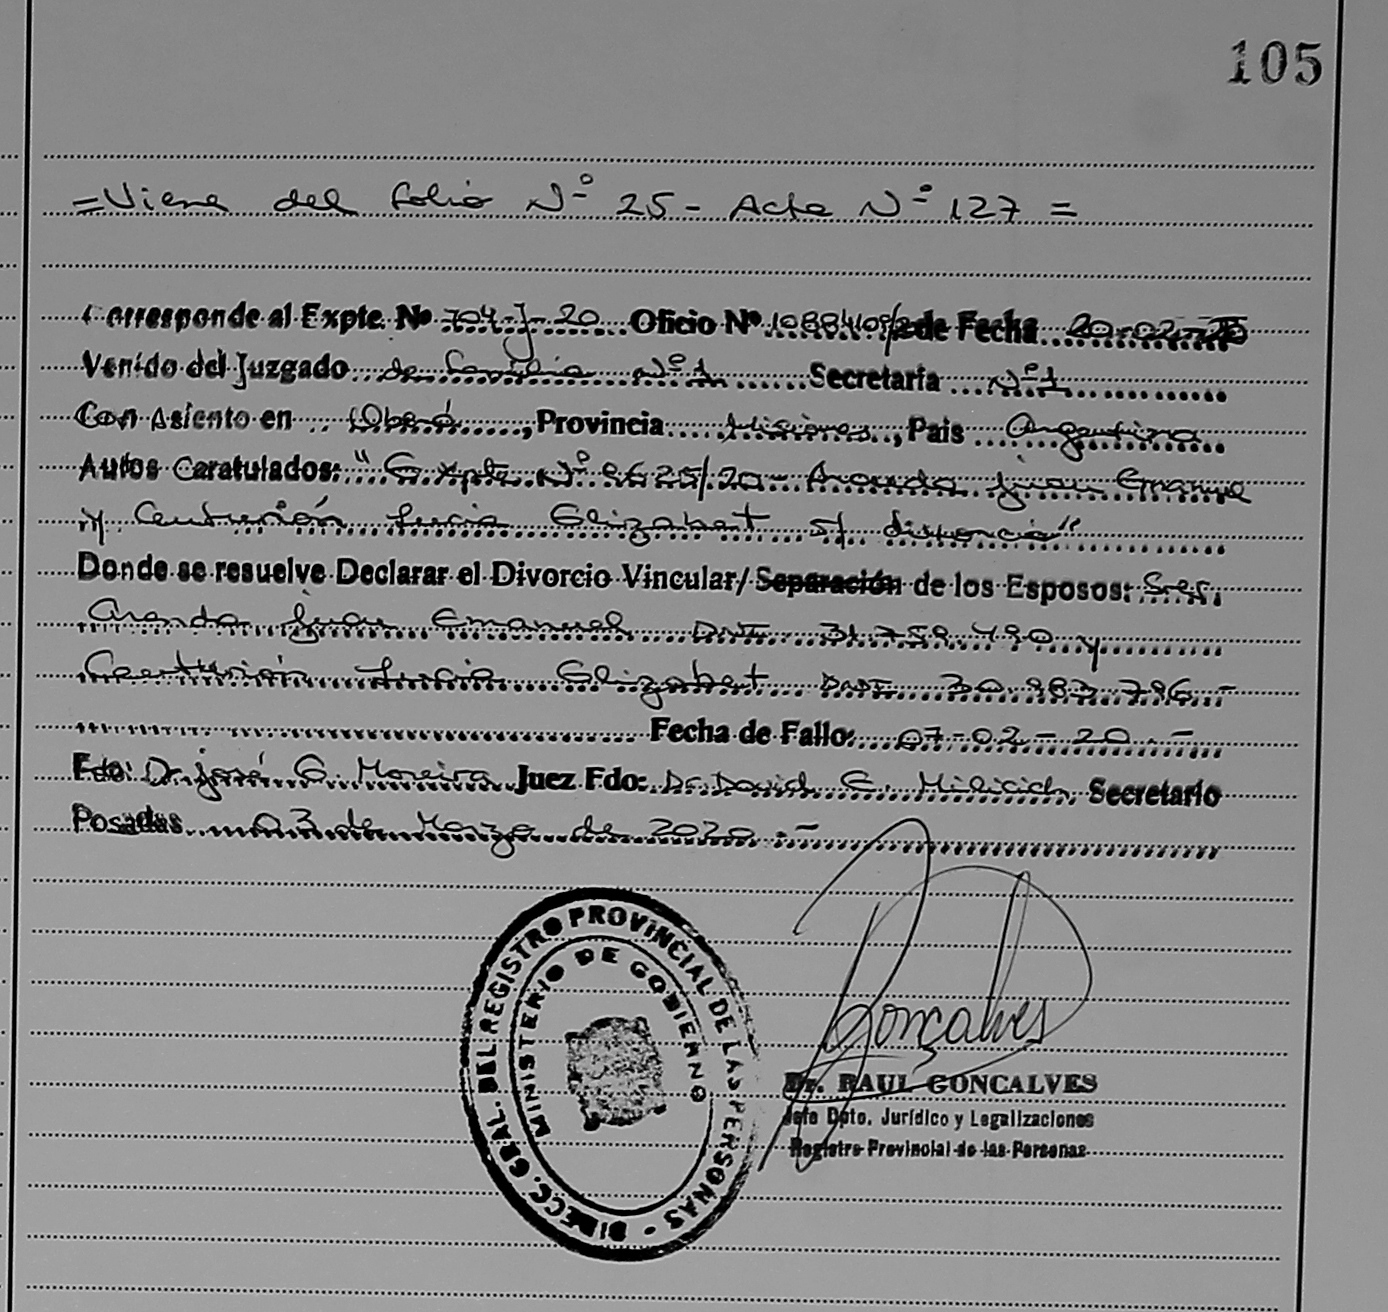 105
=Viene del folio Nº 25 - Acta Nº 127 =
Corresponde al Expte. Nº 704-J-20 Oficio Nº de Fecha 20-02-20
Venido del Juzgado de familia Nº 1 Secretaría Nº 1
Con Asiento en Oberá, Provincia Misiones, Pais Argentina
Autos Caratulados: "Expte Nº 9625/20- Aranda Juan Emanuel
y Centurión Lucia Elizabet s/ divorcio"
Donde se resuelve Declarar el Divorcio Vincular/ Separación de los Esposos: Sres.
Aranda Juan Emanuel DNI 31.759.490 y
Centurión Lucia Elizabet DNI 30.983.796 -
Fecha de Fallo: 07-02-20.-
Fdo: Dr. José G. Moreira Juez Fdo: Dr. David E. Milicich Secretario
Posadas 03 de Marzo de 2020.-
DIRECC. GRAL. DEL REGISTRO PROVINCIAL DE LAS PERSONAS -
MINISTERIO DE GOBIERNO
Goncalves
Dr. RAUL GONCALVES
Jefe Dpto. Jurídico y Legalizaciones
Registro Provincial de las Personas